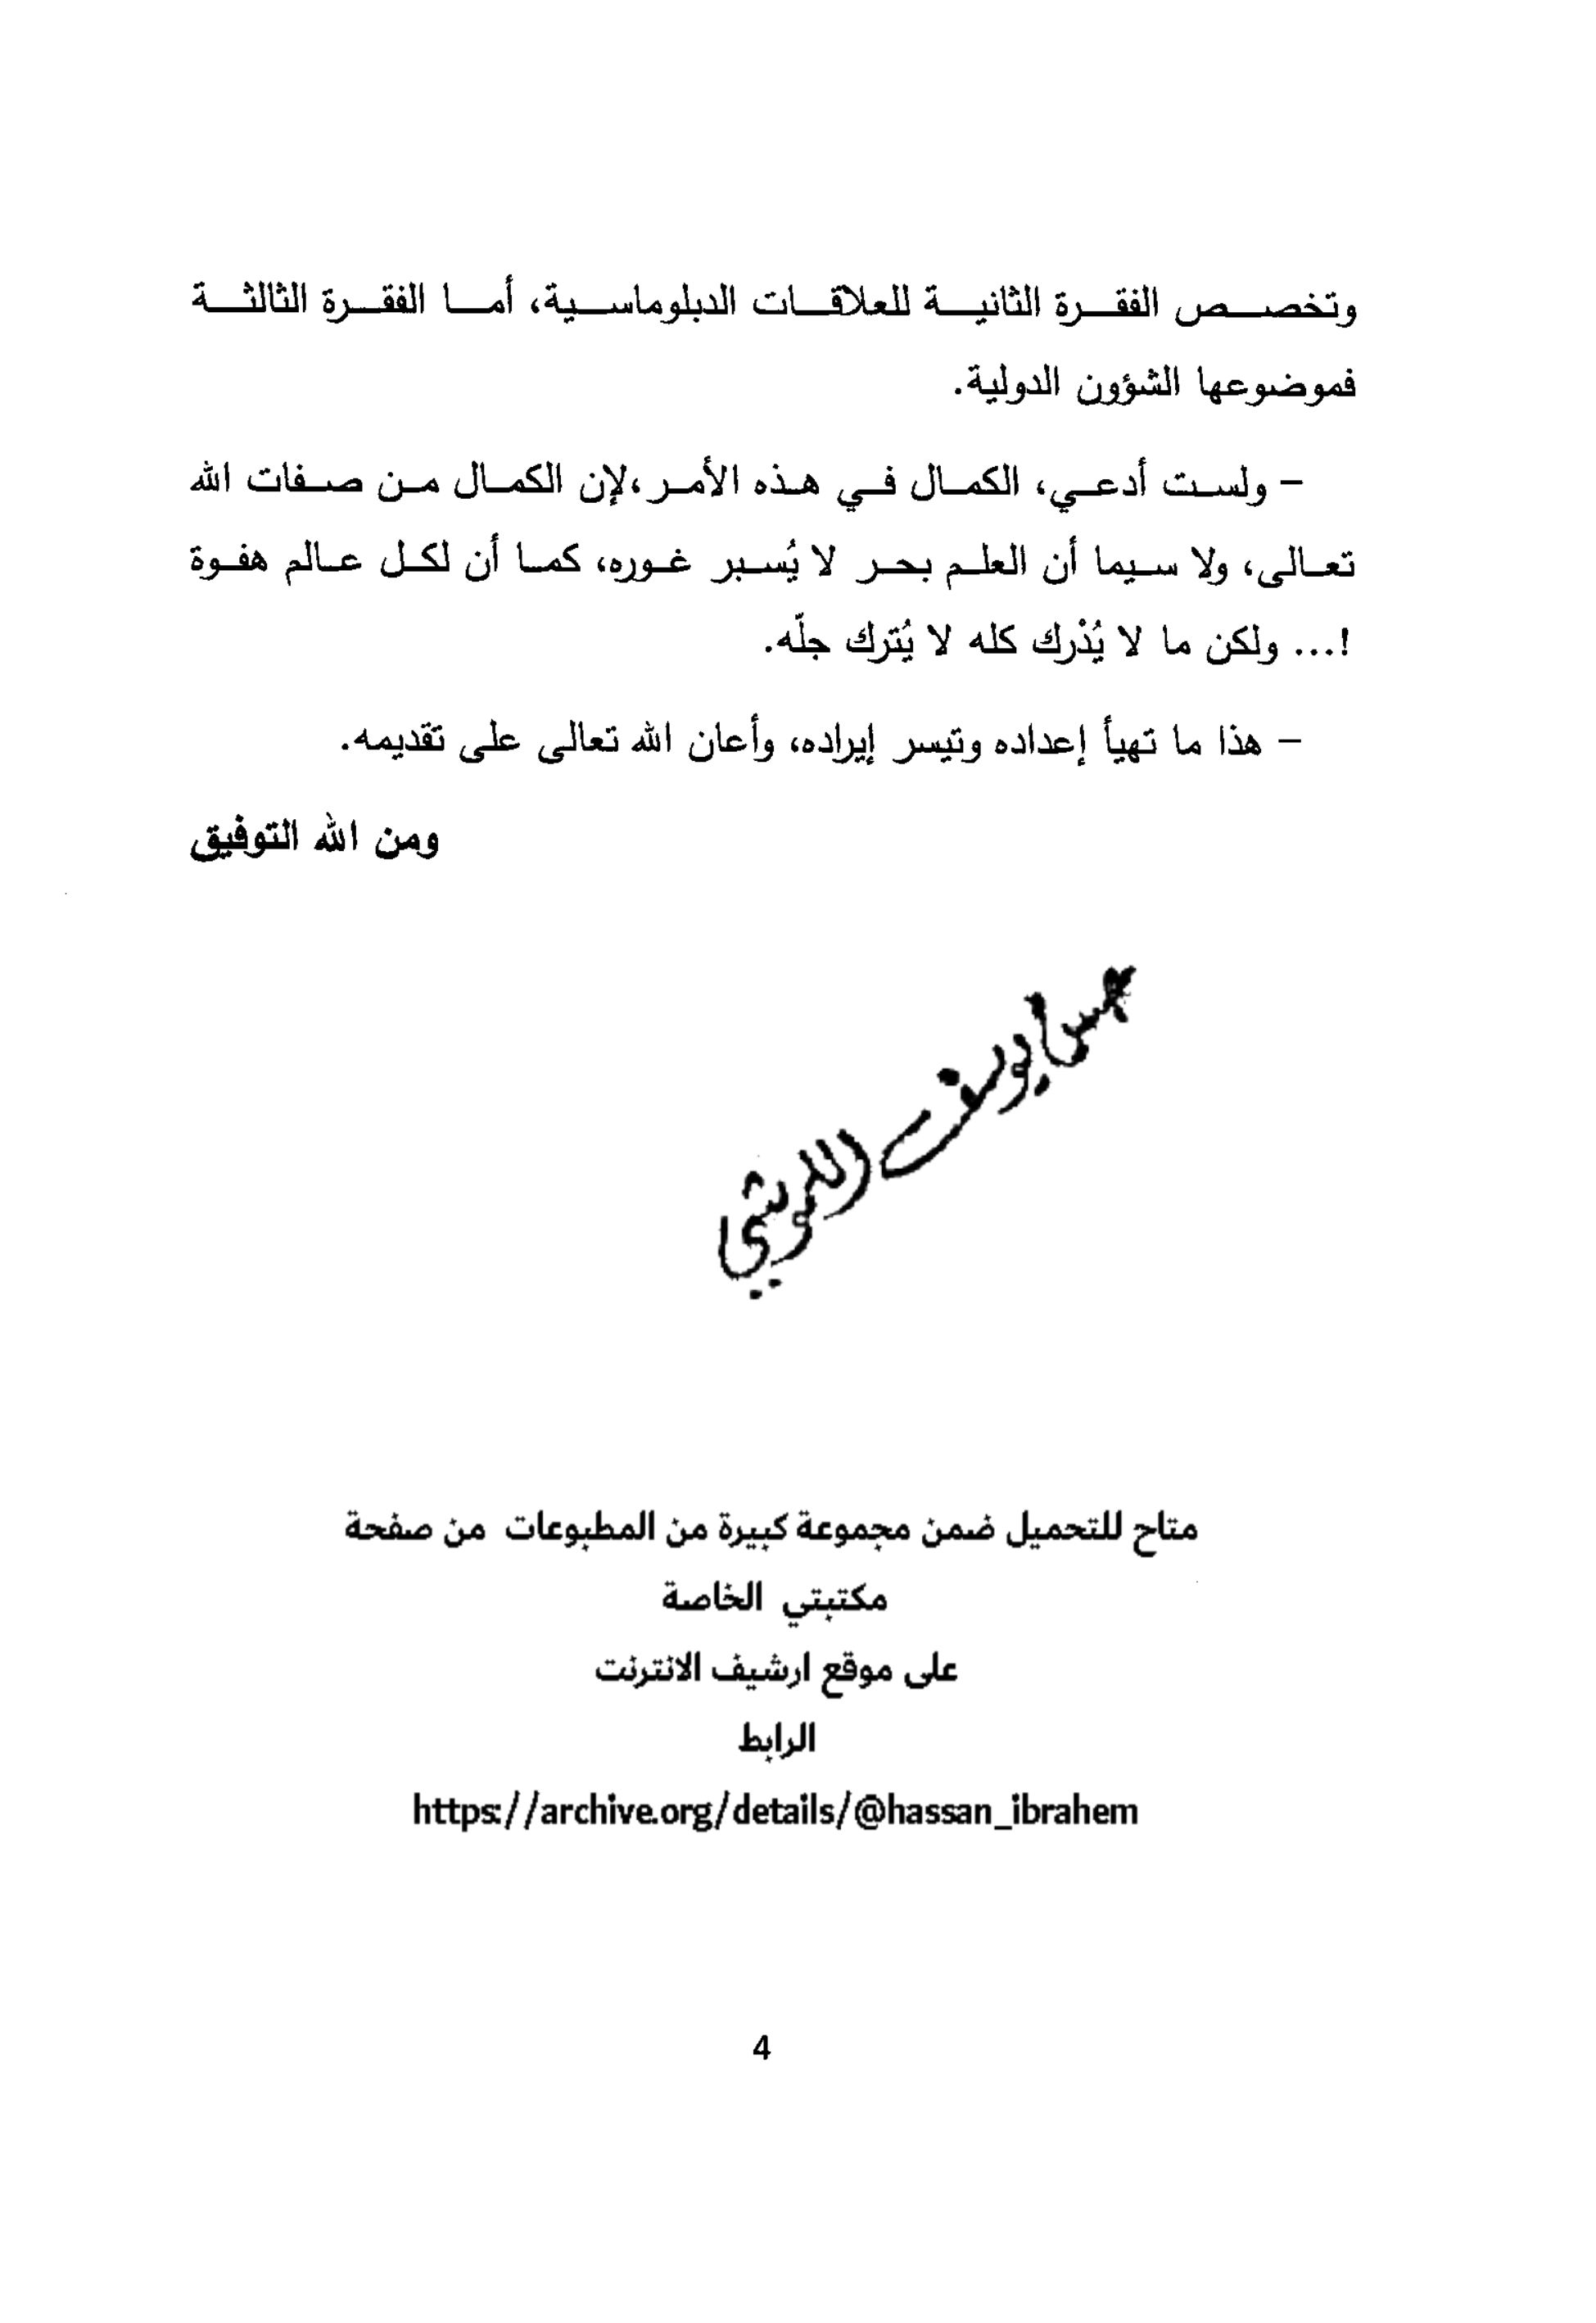 وتخصص الفقرة الثانية للعلاقات الدبلوماسية، أما الفقرة الثالثة
فموضوعها الشؤون الدولية.
– ولست أدعي، الكمال في هذه الأمر،لإن الكمال من صفات الله
تعالى، ولا سيما أن العلم بحر لا يُسبر غوره، كما أن لكل عالم هفوة
!... ولكن ما لا يُدْرك كله لا يُترك جلّه.
– هذا ما تهيأ إعداده وتيسر إيراده، وأعان الله تعالى على تقديمه.
ومن الله التوفيق
يوسف
متاح للتحميل ضمن مجموعة كبيرة من المطبوعات من صفحة
مكتبتي الخاصة
على موقع ارشيف الانترنت
الرابط
https://archive.org/details/@hassan_ibrahem
4